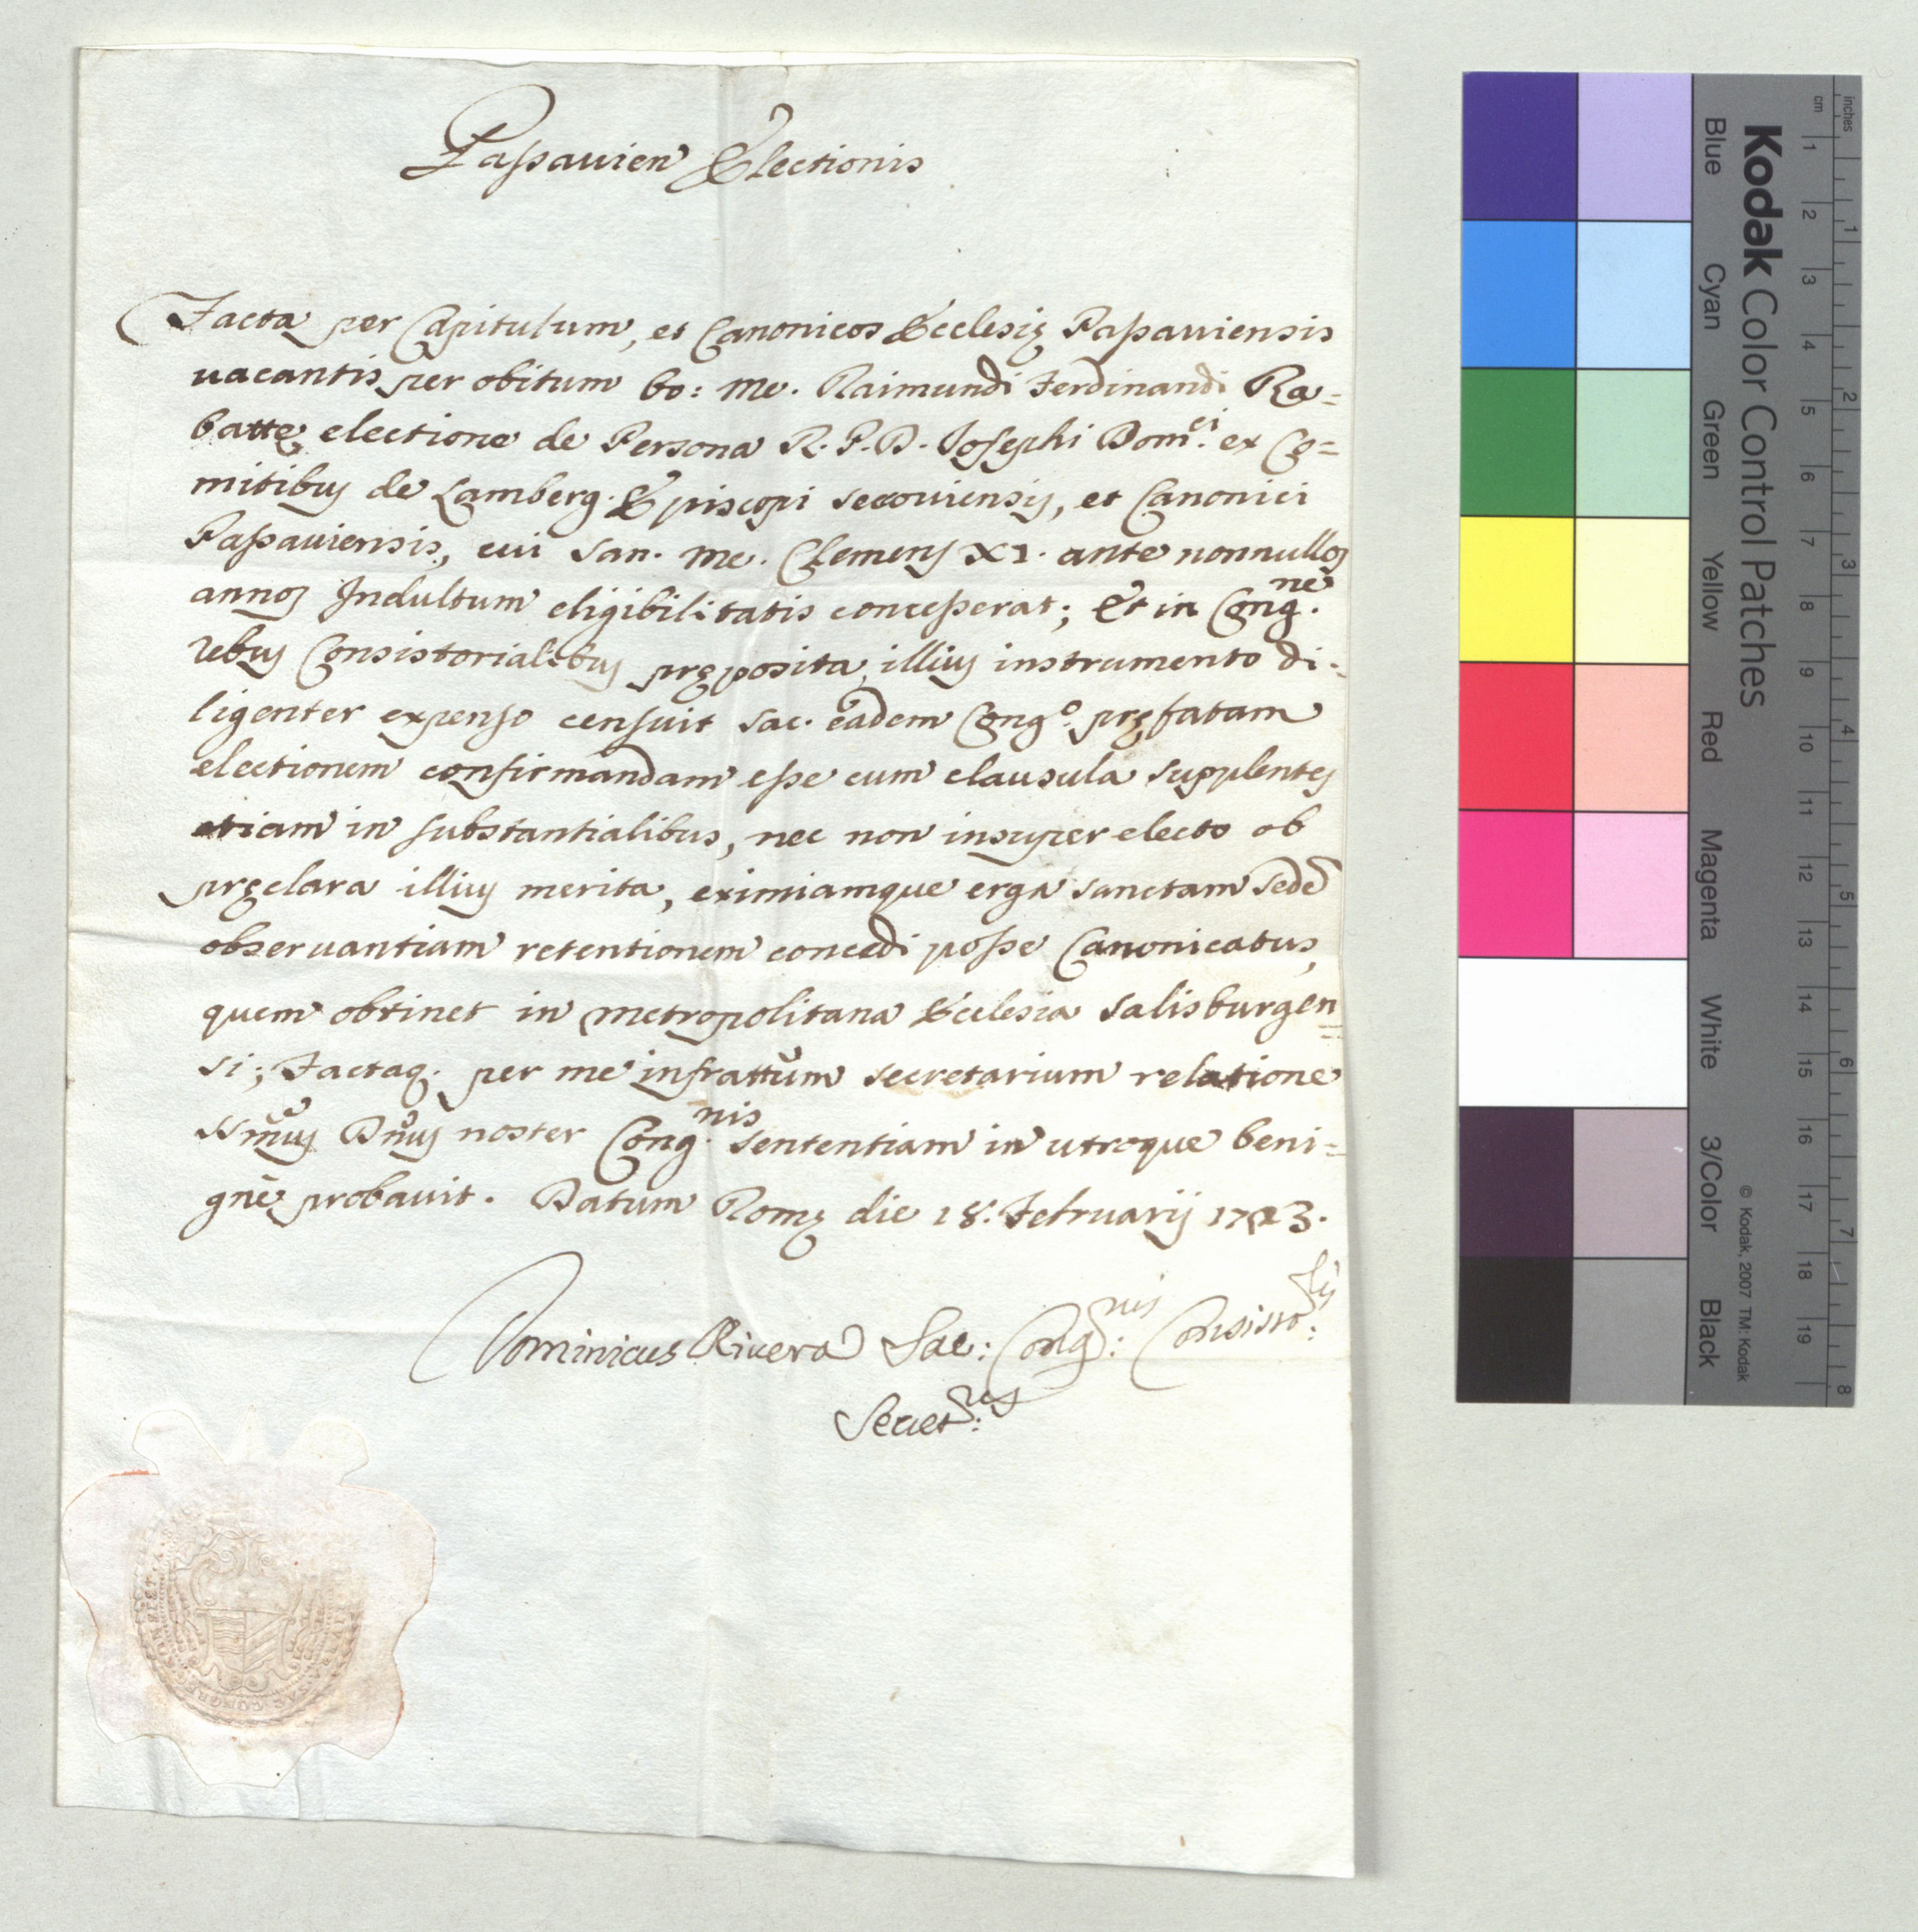 Passauien Electionis
Facta per Capitulum, et Canonicos Ecclesię Passauiensis
uacantis per obitum bo: me. Raimundi Ferdinandi Ra=
battę electione de Persona R. P. D. Josephi Dom.ci ex Co=
mitibus de Lamberg Episcopi Secouiensis, et Canonici
Passauiensis, cui San. me. Clemens XI. ante nonnullos
annos Indultum eligibilitatis concesserat; Et in Cong.ne
rebus Consistorialibus pręposita, illius instrumento di-
ligenter expenso censuit Sac. eadem Cong.o pręfatam
electionem confirmandam esse cum clausula supplentes
etiam in substantialibus, nec non insuper electo ob
pręclara illius merita, eximiamque erga Sanctam Sedē
obseruantiam retentionem concedi posse Canonicatus,
quem obtinet in Metropolitana Ecclesia Salisburgen=
si; Factaq. per me infrattum Secretarium relatione
SSmus Dnus noster Cong.nis Sententiam in utroque beni=
gnè probauit. Datum Romę die 18. Februarij 1723.
Dominicus Riuera Sac: Cong:nis Consisto:lis
Secret:rius
Kodak Color Control Patches
Blue Cyan Green Yellow Red Magenta White 3/Color Black
© Kodak, 2007 TM: Kodak
cm 1 2 3 4 5 6 7 8 9 10 11 12 13 14 15 16 17 18 19
inches 1 2 3 4 5 6 7 8